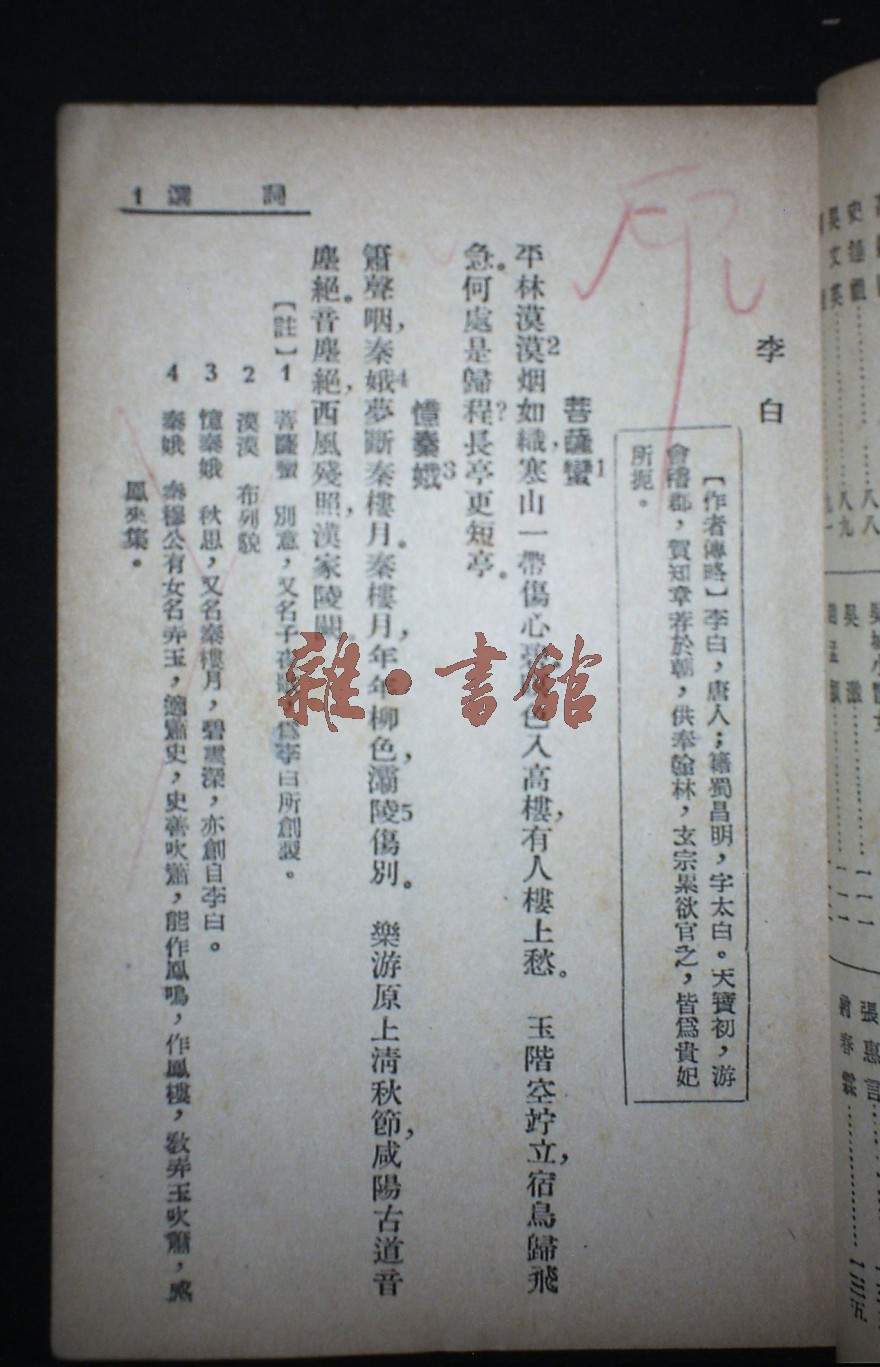 詞選 1
李白
【作者傳略】李白，唐人；籍蜀昌明，字太白。天寶初，游
會稽郡，賀知章荐於朝，供奉翰林，玄宗累欲官之，皆爲貴妃
所扼。
菩薩蠻1
平林漠漠2烟如織，寒山一帶傷心碧，色入高樓，有人樓上愁。　玉階空竚立，宿鳥歸飛
急。何處是歸程？長亭更短亭。
憶秦娥3
簫聲咽，秦娥4夢斷秦樓月。秦樓月，年年柳色，灞陵5傷別。　樂游原上清秋節，咸陽古道音
塵絕。音塵絕，西風殘照，漢家陵闕。
【註】1　菩薩蠻　別意，又名子夜，爲李白所創製。
2　漠漠　布列貌
3　憶秦娥　秋思，又名秦樓月，碧雲深，亦創自李白。
4　秦娥　秦穆公有女名弄玉，適蕭史，史善吹簫，能作鳳鳴，作鳳樓，敎弄玉吹簫，感
鳳來集。
雜·書館
印
史達祖……八八
吳文英……八九
張惠言
蔣春霖……一三五